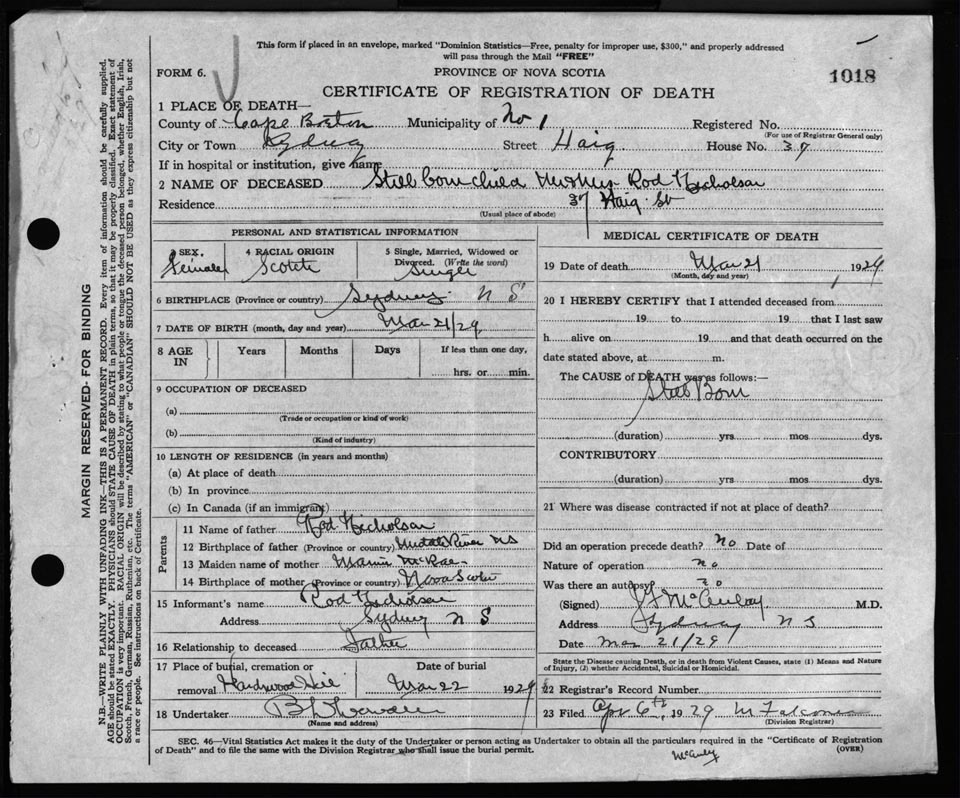 This form if placed in an envelope, marked "Dominion Statistics—Free, penalty for improper use, $300," and properly addressed
will pass through the Mail "FREE"
FORM 6.
PROVINCE OF NOVA SCOTIA
1018
CERTIFICATE OF REGISTRATION OF DEATH
1 PLACE OF DEATH—
County of Cape Breton Municipality of No 1 Registered No.
(For use of Registrar General only)
City or Town Sydney Street Haig House No. 37
If in hospital or institution, give name
2 NAME OF DECEASED Still born child Rod Nicholson
Residence 37 Haig St
(Usual place of abode)
PERSONAL AND STATISTICAL INFORMATION
3 SEX. 4 RACIAL ORIGIN 5 Single, Married, Widowed or
Divorced. (Write the word)
Female Scotch Single
6 BIRTHPLACE (Province or country) Sydney N S
7 DATE OF BIRTH (month, day and year) Mar 21/29
8 AGE IN Years Months Days If less than one day,
hrs. or min.
9 OCCUPATION OF DECEASED
(a)
(Trade or occupation or kind of work)
(b)
(Kind of industry)
10 LENGTH OF RESIDENCE (in years and months)
(a) At place of death
(b) In province
(c) In Canada (if an immigrant)
Parents
11 Name of father Rod Nicholson
12 Birthplace of father (Province or country) Middle River NS
13 Maiden name of mother McRae
14 Birthplace of mother (Province or country) Nova Scotia
15 Informant's name Rod Nicholson
Address Sydney N S
16 Relationship to deceased Father
17 Place of burial, cremation or Date of burial
removal Hardwood Hill Mar 22 1929
18 Undertaker
(Name and address)
MEDICAL CERTIFICATE OF DEATH
19 Date of death Mar 21, 1929
(Month, day and year)
20 I HEREBY CERTIFY that I attended deceased from
19 to 19 that I last saw
h alive on 19 and that death occurred on the
date stated above, at m.
The CAUSE of DEATH was as follows:—
Still Born
(duration) yrs. mos dys.
CONTRIBUTORY
(duration) yrs mos dys.
21 Where was disease contracted if not at place of death?
Did an operation precede death? no Date of
Nature of operation no
Was there an autopsy no
(Signed) McAulay M.D.
Address Sydney N S
Date Mar 21/29
State the Disease causing Death, or in death from Violent Causes, state (1) Means and Nature
of Injury, (2) whether Accidental, Suicidal or Homicidal.
22 Registrar's Record Number
23 Filed Apr 6th, 1929
(Division Registrar)
SEC. 46—Vital Statistics Act makes it the duty of the Undertaker or person acting as Undertaker to obtain all the particulars required in the "Certificate of Registration
of Death" and to file the same with the Division Registrar who shall issue the burial permit.
(OVER)
MARGIN RESERVED- FOR BINDING
N.B.—WRITE PLAINLY WITH UNFADING INK—THIS IS A PERMANENT RECORD. Every item of information should be carefully supplied.
AGE should be stated EXACTLY. PHYSICIANS should STATE CAUSE OF DEATH in plain terms, so that it may be properly classified. Exact statement of
OCCUPATION is very important. RACIAL ORIGIN will be described by stating to what people or tongue the deceased person belonged, whether English, Irish,
Scotch, French, German, Russian, Ruthenian, etc. The terms "AMERICAN" or "CANADIAN" SHOULD NOT BE USED as they express citizenship but not
a race or people. See instructions on back of Certificate.